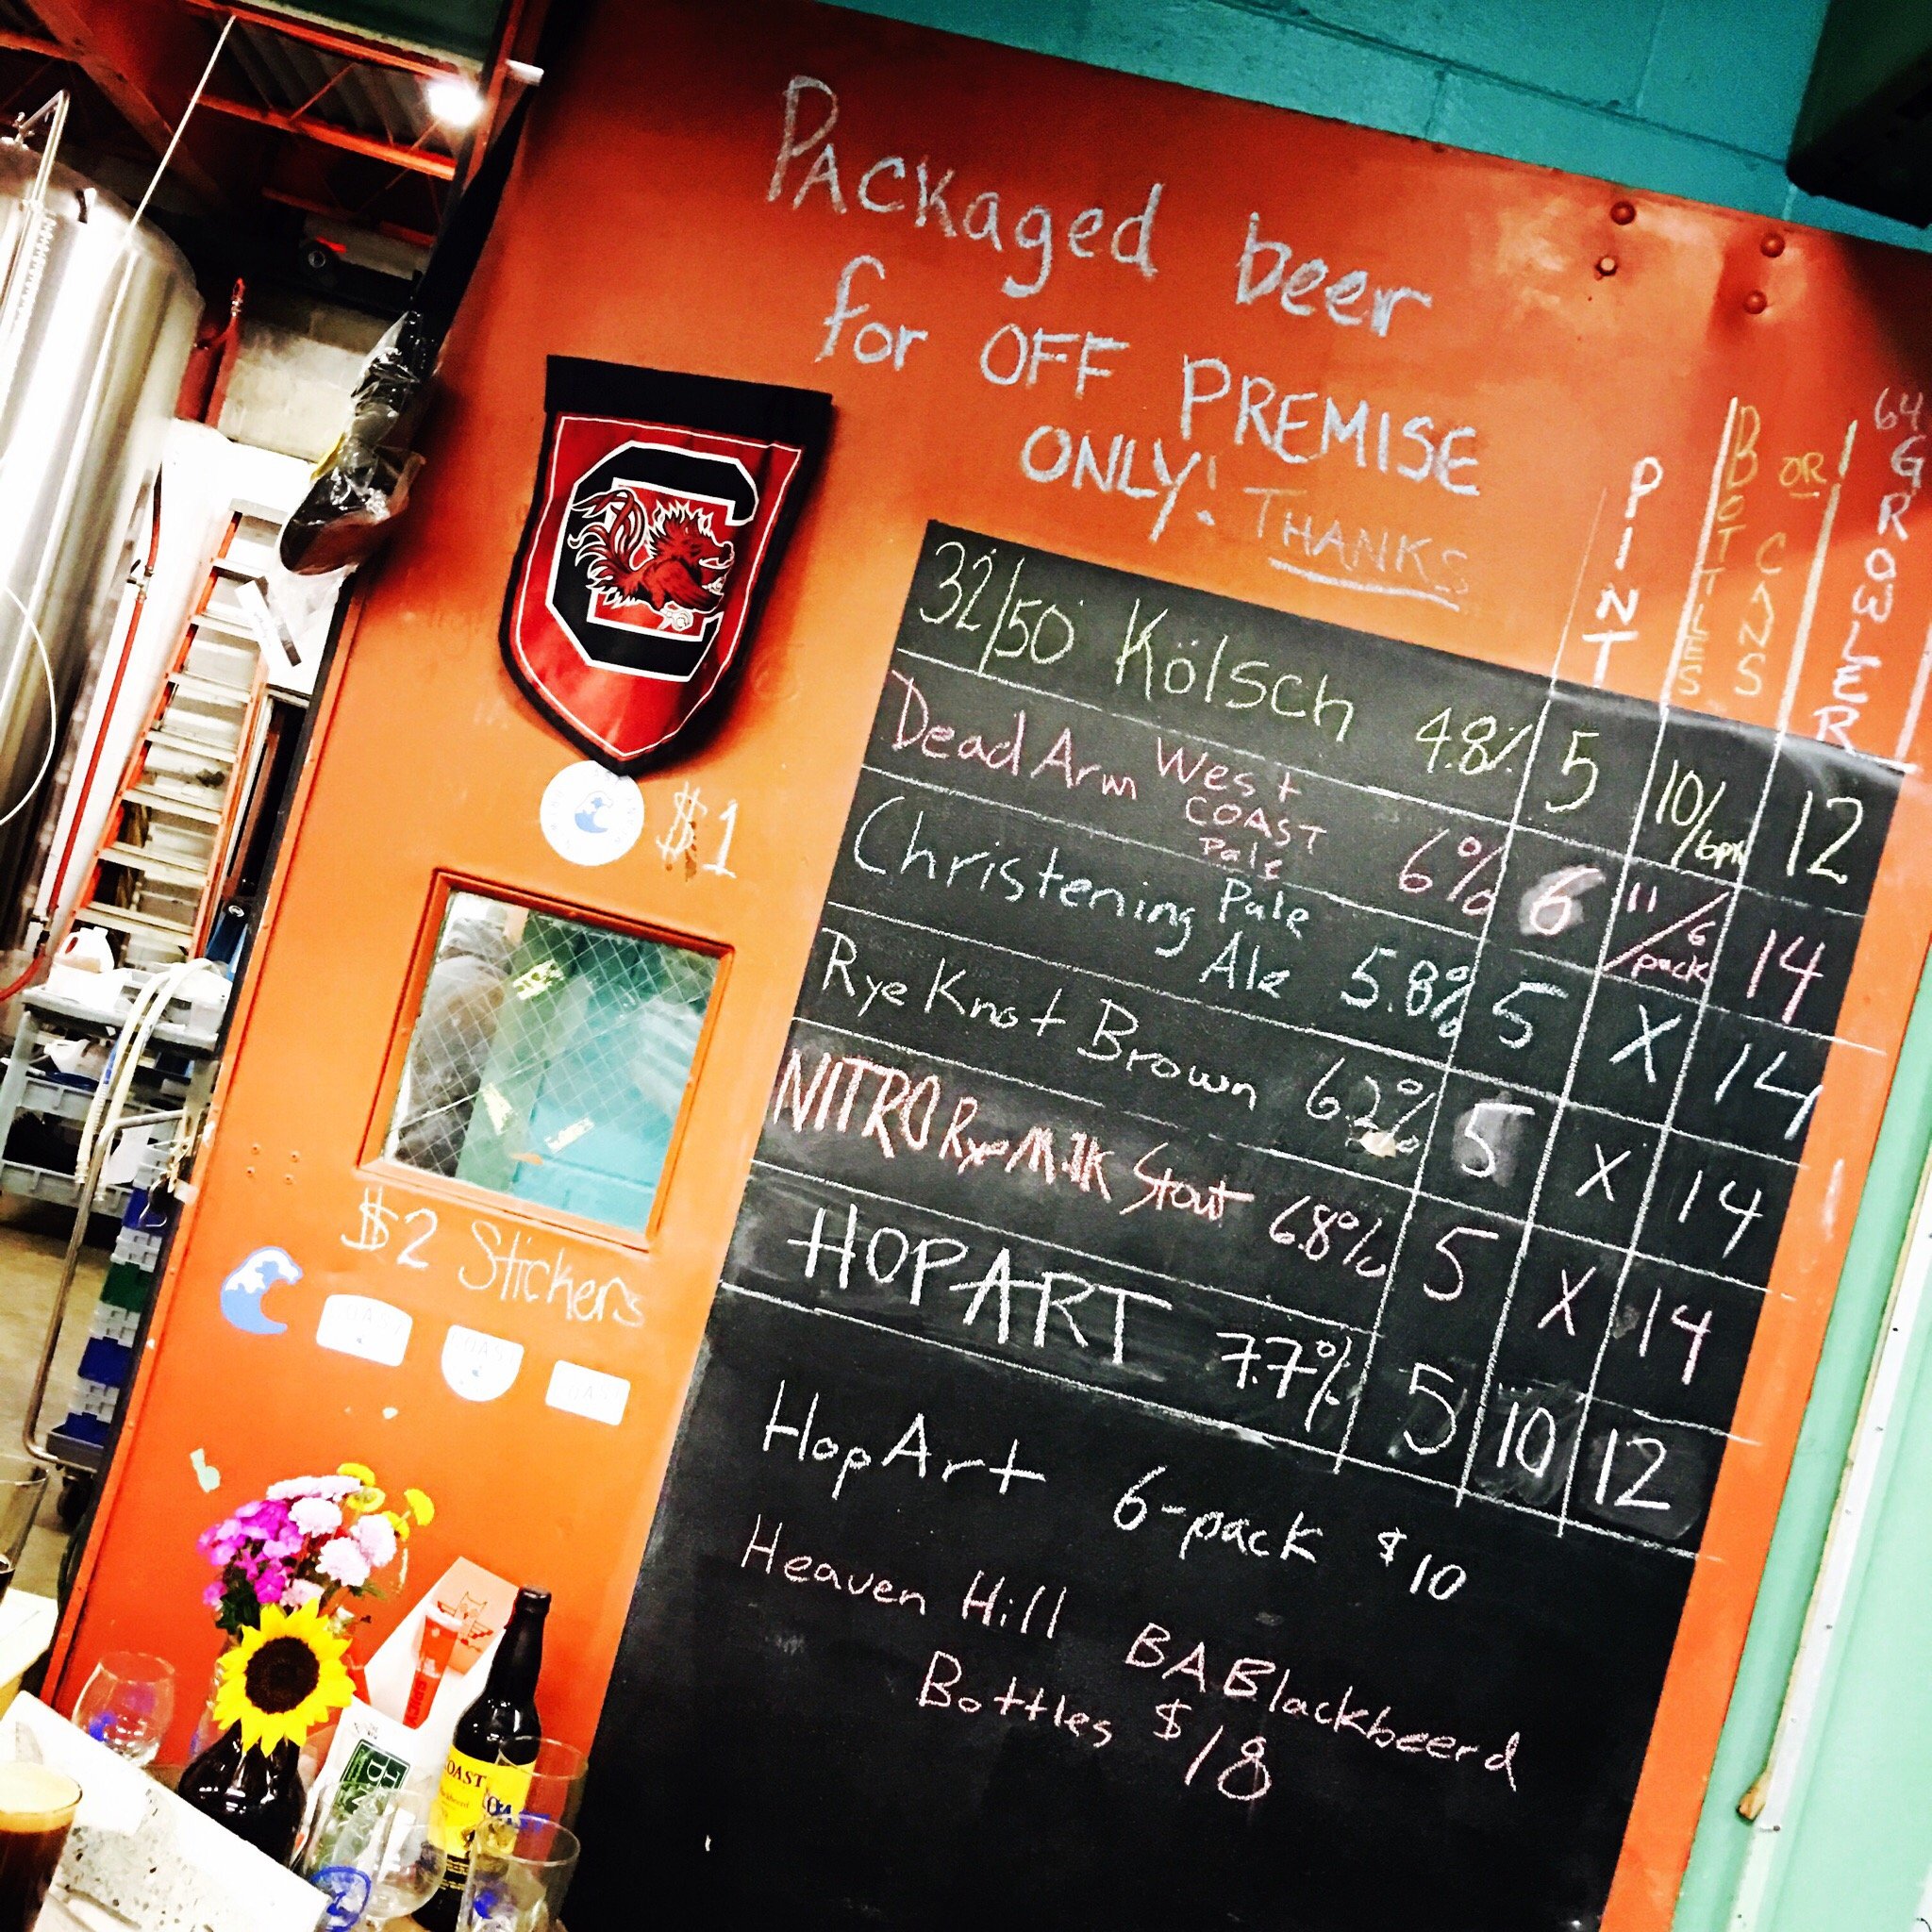 Packaged beer
for OFF PREMISE
ONLY! THANKS
PINT
BOTTLES OR CANS
64 GROWLER
32/50 Kölsch 4.8% 5 10/6pk 12
Dead Arm West COAST Pale 6% 6 11/6 pack 14
Christening Pale Ale 5.8% 5 X 14
Rye Knot Brown 6.2% 5 X 14
NITRO Rye Milk Stout 6.8% 5 X 14
HOPART 7.7% 5 10 12
HopArt 6-pack $10
Heaven Hill BA Blackbeerd
Bottles $18
C
$1
$2 Stickers
COAST